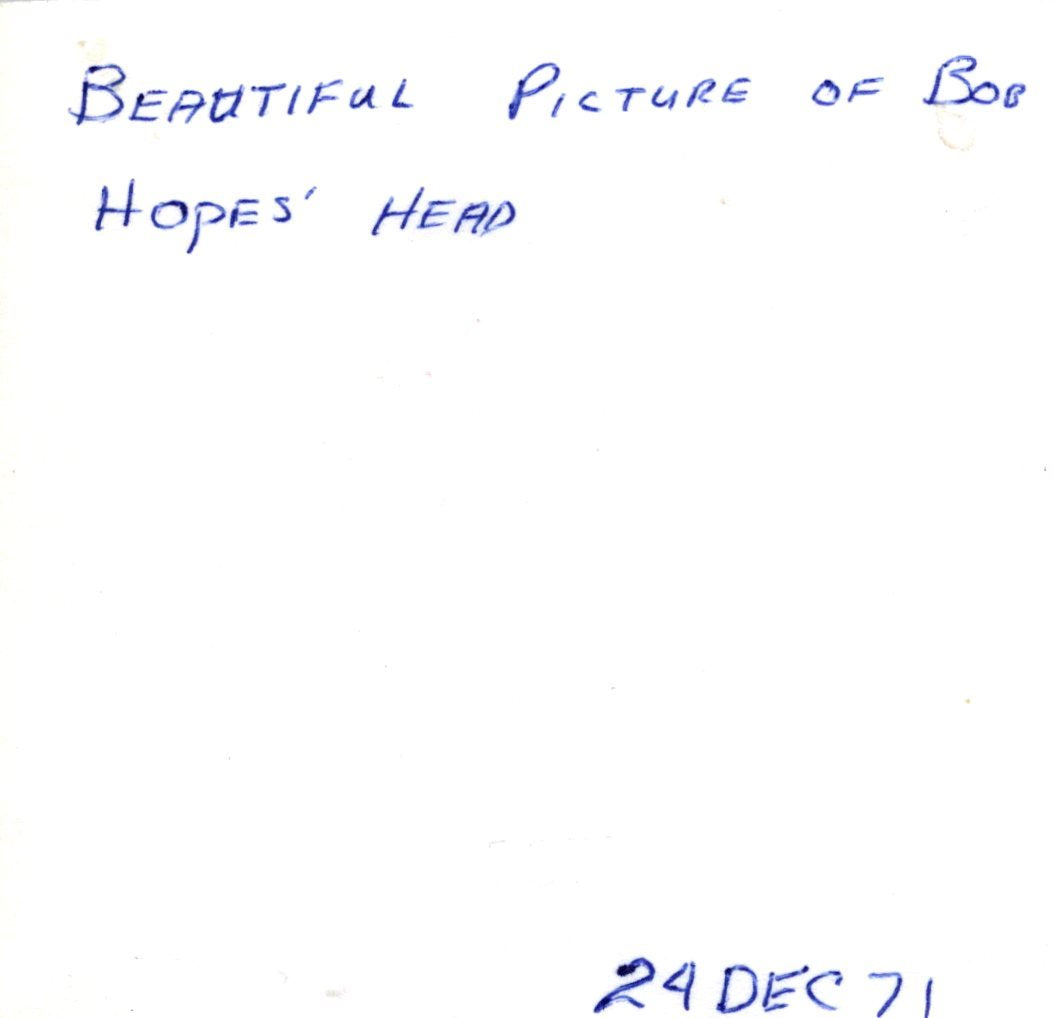 BEAUTIFUL PICTURE OF BOB
HOPES' HEAD
24 DEC 71